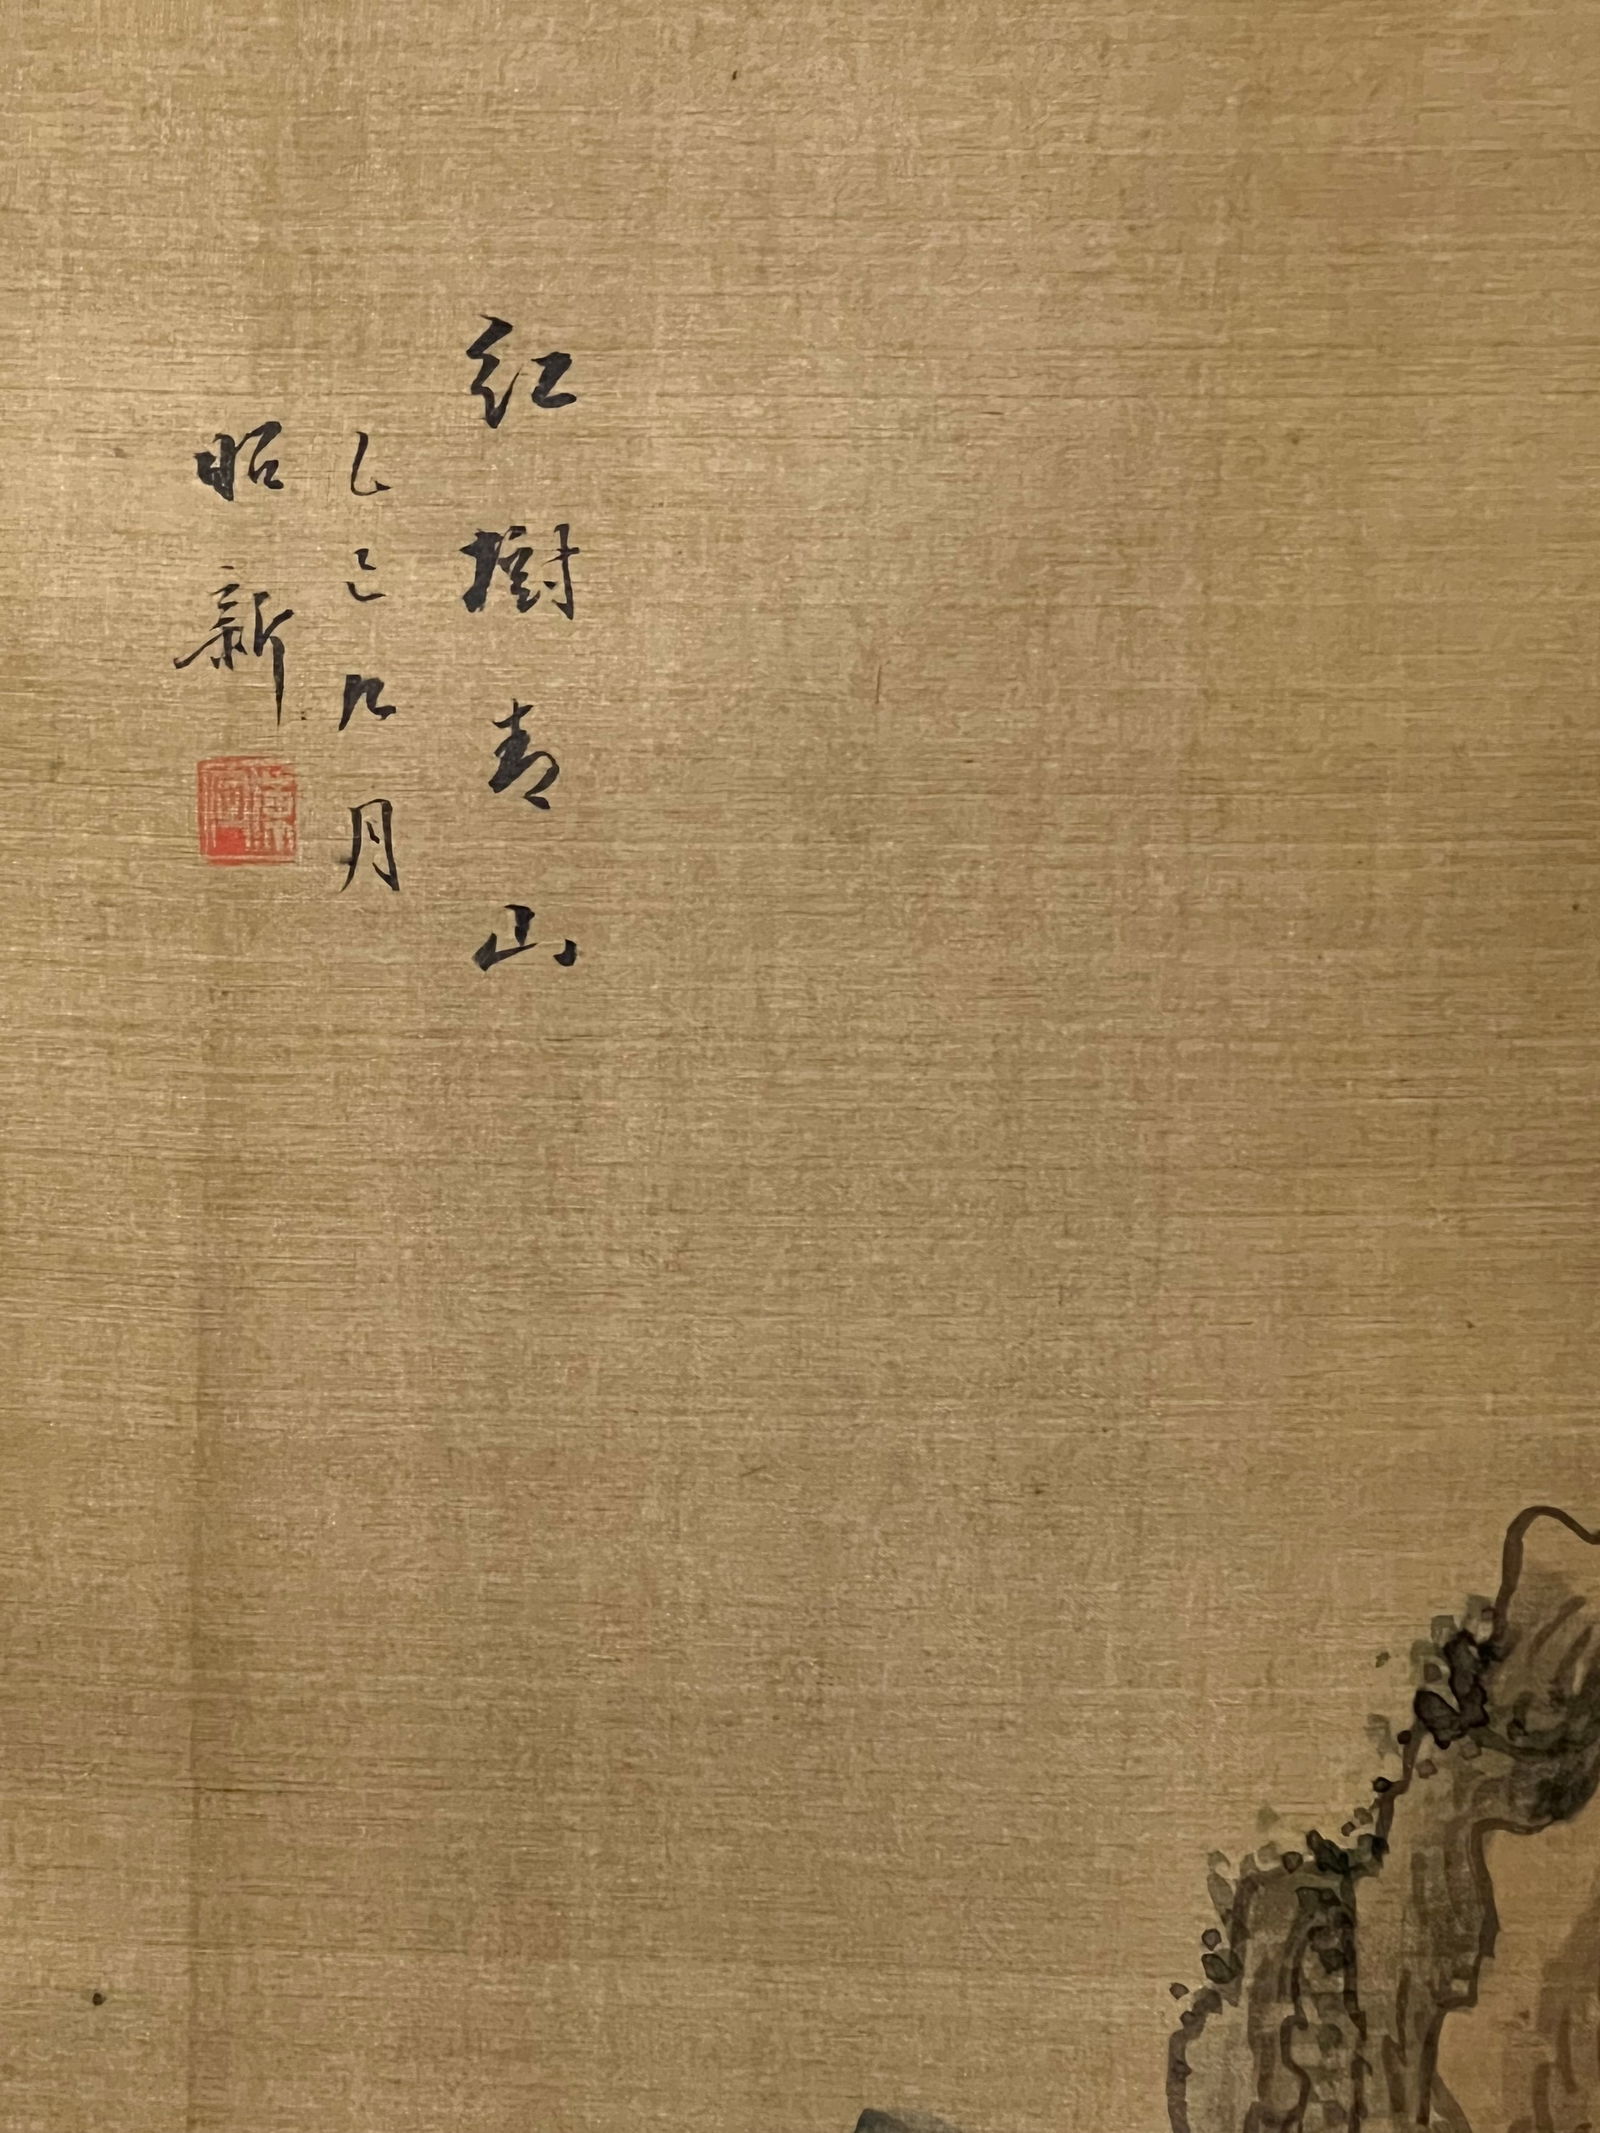 紅樹青山
乙巳九月
昭新